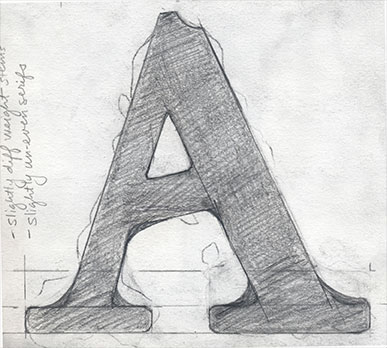 A
- slightly diff weight stems
- slightly un-even serifs